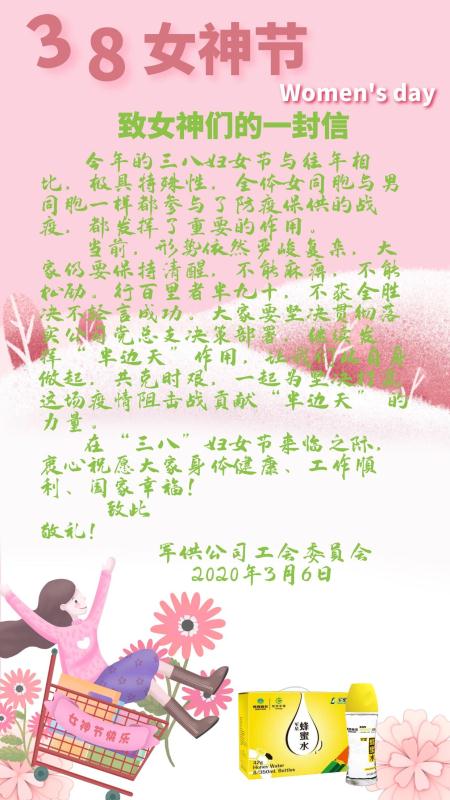 38女神节
Women's day
致女神们的一封信
今年的三八妇女节与往年相
比，极具特殊性，全体女同胞与男
同胞一样都参与了防疫保供的战
疫，都发挥了重要的作用。
当前，形势依然严峻复杂，大
家仍要保持清醒，不能麻痹，不能
松励。行百里者半九十，不获全胜
决不轻言成功，大家要坚决贯彻落
实公司党总支决策部署，继续发
挥“半边天”作用，让我们从自身
做起，共克时艰，一起为坚决打赢
这场疫情阻击战贡献“半边天”的
力量。
在“三八”妇女节来临之际，
衷心祝愿大家身体健康、工作順
利、国家幸福！
致此
敬礼！
军供公司工会委員会
2020年3月6日
女神节快乐
蜂蜜水
42g
Honey Water
8/350mL Bottles
蜂蜜水